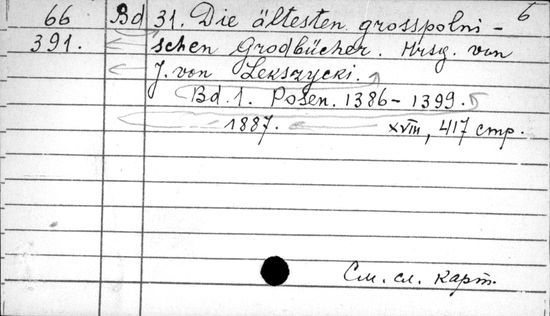 6
66 Bd 31. Die ältesten grosspolni-
391. schen Grodbücher. Hrsg. von
J. von Lekszycki.
Bd. 1. Posen. 1386-1399.
1887. XVIII, 417 стр.
См. сл. карт.